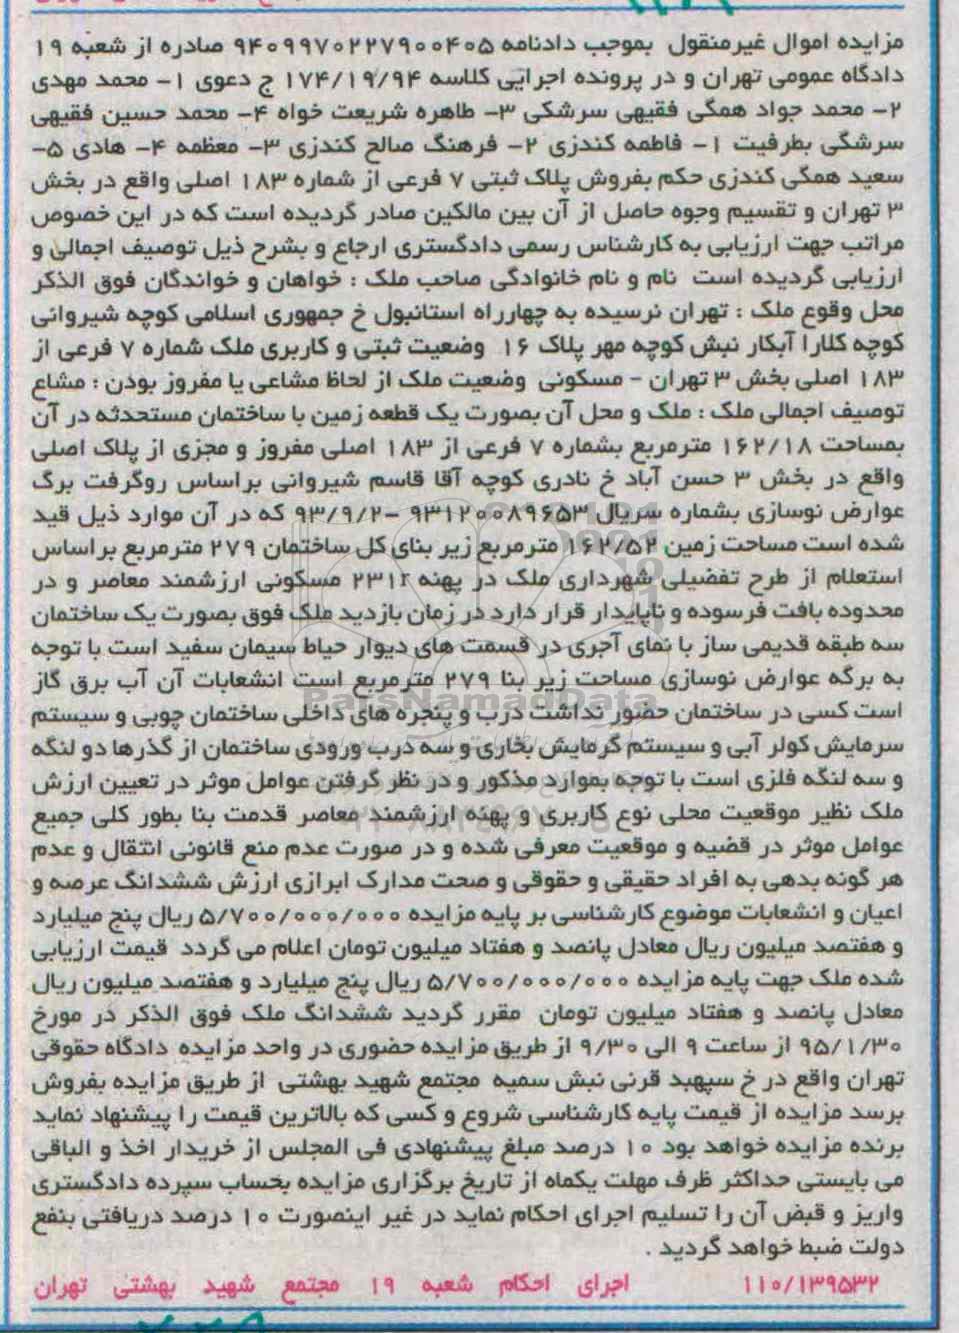 مزایده اموال غیرمنقول بموجب دادنامه ۹۴۰۹۹۷۰۲۲۷۹۰۰۴۰۵ صادره از شعبه ۱۹
دادگاه عمومی تهران و در پرونده اجرایی کلاسه ۱۷۴/۱۹/۹۴ ج دعوی ۱- محمد مهدی
۲- محمد جواد همگی فقیهی سرشکی ۳- طاهره شریعت خواه ۴- محمد حسین فقیهی
سرشگی بطرفیت ۱- فاطمه کندزی ۲- فرهنگ صالح کندزی ۳- معظمه ۴- هادی ۵-
سعید همگی کندزی حکم بفروش پلاک ثبتی ۷ فرعی از شماره ۱۸۳ اصلی واقع در بخش
۳ تهران و تقسیم وجوه حاصل از آن بین مالکین صادر گردیده است که در این خصوص
مراتب جهت ارزیابی به کارشناس رسمی دادگستری ارجاع و بشرح ذیل توصیف اجمالی و
ارزیابی گردیده است نام و نام خانوادگی صاحب ملک : خواهان و خواندگان فوق الذکر
محل وقوع ملک : تهران نرسیده به چهارراه استانبول خ جمهوری اسلامی کوچه شیروانی
کوچه کلارا آبکار نبش کوچه مهر پلاک ۱۶ وضعیت ثبتی و کاربری ملک شماره ۷ فرعی از
۱۸۳ اصلی بخش ۳ تهران - مسکونی وضعیت ملک از لحاظ مشاعی یا مفروز بودن : مشاع
توصیف اجمالی ملک : ملک و محل آن بصورت یک قطعه زمین با ساختمان مستحدثه در آن
بمساحت ۱۶۲/۱۸ مترمربع بشماره ۷ فرعی از ۱۸۳ اصلی مفروز و مجزی از پلاک اصلی
واقع در بخش ۳ حسن آباد خ نادری کوچه آقا قاسم شیروانی براساس روگرفت برگ
عوارض نوسازی بشماره سریال ۹۳۱۲۰۰۸۹۶۵۳ -۹۳/۹/۲ که در آن موارد ذیل قید
شده است مساحت زمین ۱۶۲/۵۲ مترمربع زیر بنای کل ساختمان ۲۷۹ مترمربع براساس
استعلام از طرح تفضیلی شهرداری ملک در پهنه ۲۳۱r مسکونی ارزشمند معاصر و در
محدوده بافت فرسوده و ناپایدار قرار دارد در زمان بازدید ملک فوق بصورت یک ساختمان
سه طبقه قدیمی ساز با نمای آجری در قسمت های دیوار حیاط سیمان سفید است با توجه
به برگه عوارض نوسازی مساحت زیر بنا ۲۷۹ مترمربع است انشعابات آن آب برق گاز
است کسی در ساختمان حضور نداشت درب و پنجره های داخلی ساختمان چوبی و سیستم
سرمایش کولر آبی و سیستم گرمایش بخاری و سه درب ورودی ساختمان از گذرها دو لنگه
و سه لنگه فلزی است با توجه بموارد مذکور و در نظر گرفتن عوامل موثر در تعیین ارزش
ملک نظیر موقعیت محلی نوع کاربری و پهنه ارزشمند معاصر قدمت بنا بطور کلی جمیع
عوامل موثر در قضیه و موقعیت معرفی شده و در صورت عدم منع قانونی انتقال و عدم
هر گونه بدهی به افراد حقیقی و حقوقی و صحت مدارک ابرازی ارزش ششدانگ عرصه و
اعیان و انشعابات موضوع کارشناسی بر پایه مزایده ۵/۷۰۰/۰۰۰/۰۰۰ ریال پنج میلیارد
و هفتصد میلیون ریال معادل پانصد و هفتاد میلیون تومان اعلام می گردد قیمت ارزیابی
شده ملک جهت پایه مزایده ۵/۷۰۰/۰۰۰/۰۰۰ ریال پنج میلیارد و هفتصد میلیون ریال
معادل پانصد و هفتاد میلیون تومان مقرر گردید ششدانگ ملک فوق الذکر در مورخ
۹۵/۱/۳۰ از ساعت ۹ الی ۹/۳۰ از طریق مزایده حضوری در واحد مزایده دادگاه حقوقی
تهران واقع در خ سپهبد قرنی نبش سمیه مجتمع شهید بهشتی از طریق مزایده بفروش
برسد مزایده از قیمت پایه کارشناسی شروع و کسی که بالاترین قیمت را پیشنهاد نماید
برنده مزایده خواهد بود ۱۰ درصد مبلغ پیشنهادی فی المجلس از خریدار اخذ و الباقی
می بایستی حداکثر ظرف مهلت یکماه از تاریخ برگزاری مزایده بحساب سپرده دادگستری
واریز و قبض آن را تسلیم اجرای احکام نماید در غیر اینصورت ۱۰ درصد دریافتی بنفع
دولت ضبط خواهد گردید .
۱۱۰/۱۳۹۵۳۲ اجرای احکام شعبه ۱۹ مجتمع شهید بهشتی تهران
ParsNamadData